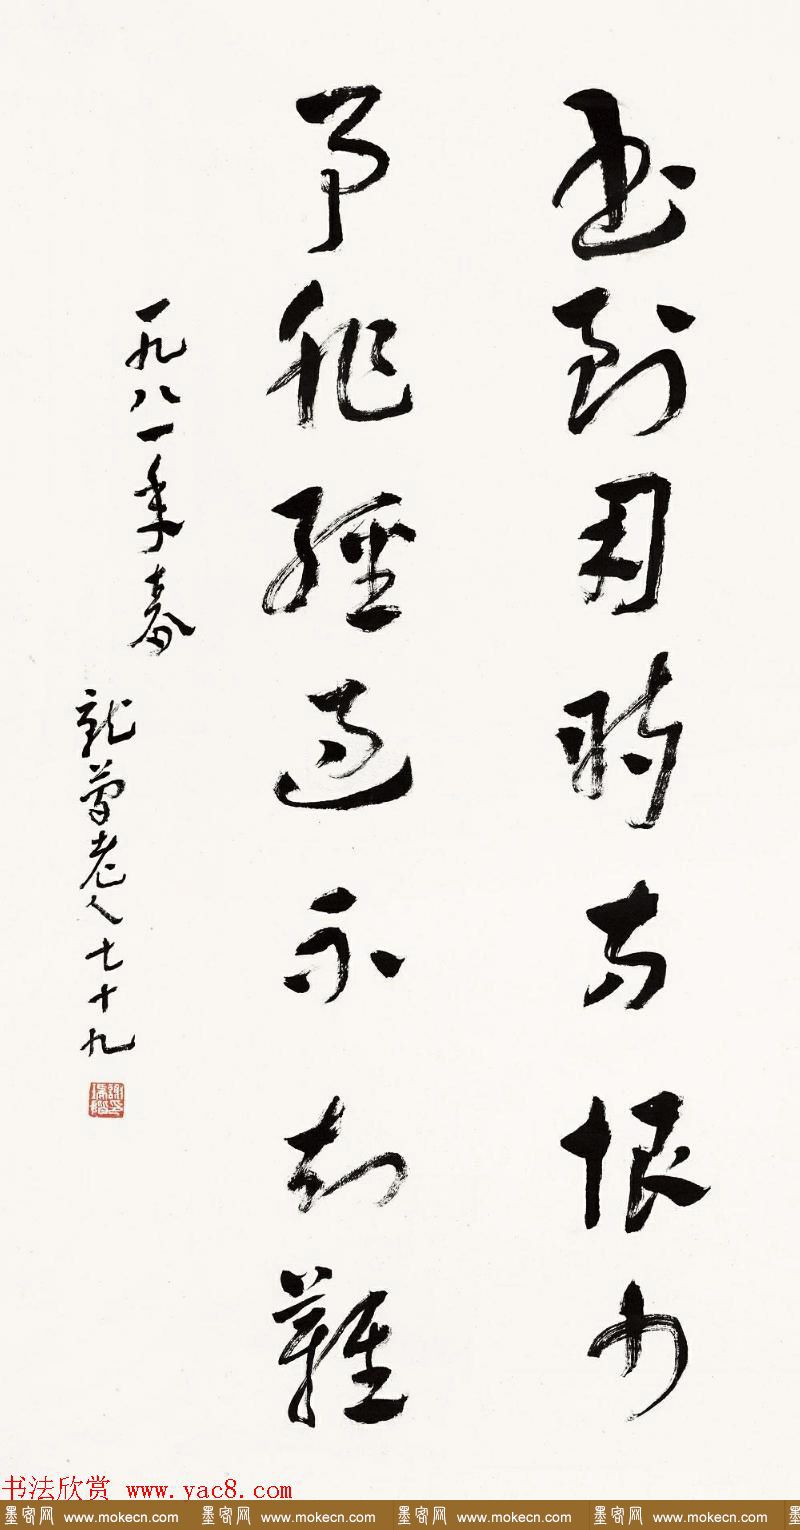 書到用時方恨少
事非經過不知難
一九八一年春
就簡老人七十九
书法欣赏 www.yac8.com
墨客网 www.mokecn.com 墨客网 www.mokecn.com 墨客网 www.mokecn.com 墨客网 www.mokecn.com